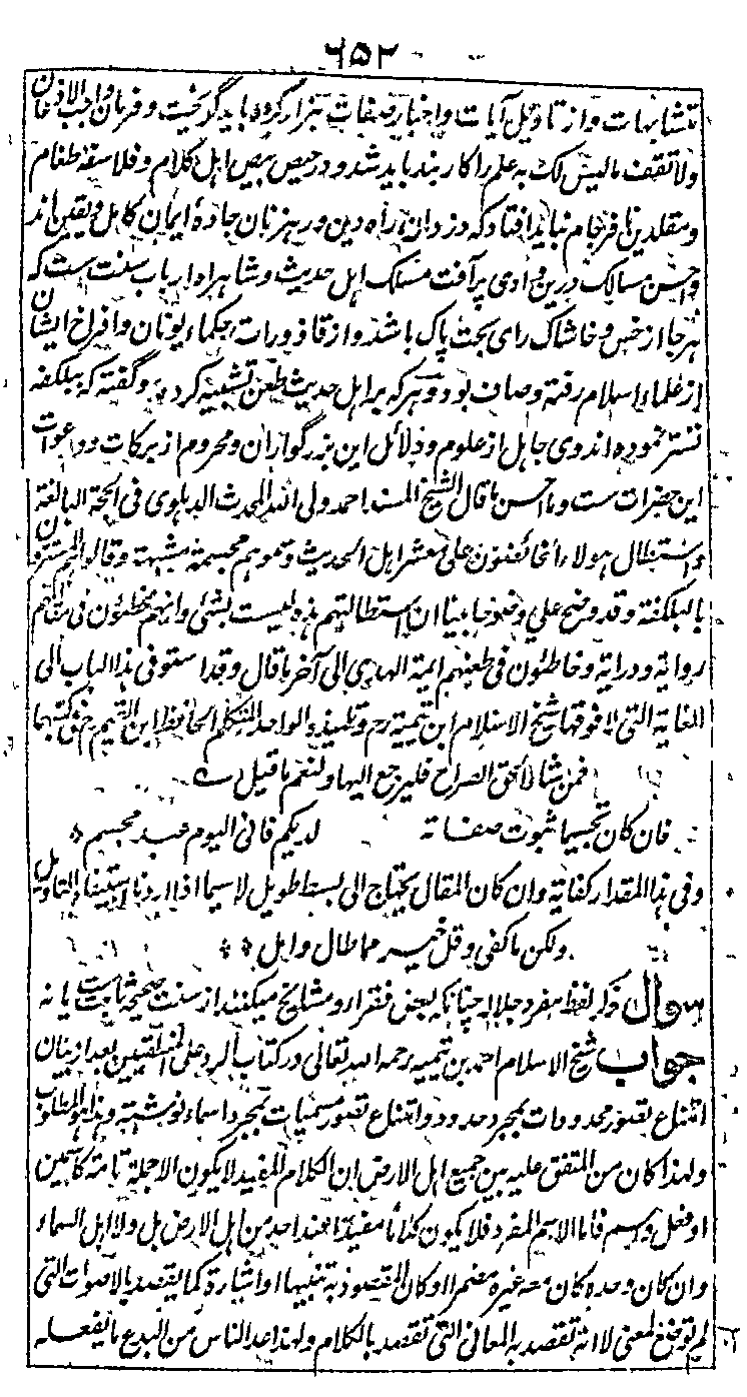 ۶۵۲
متشابهات و از تاویل آیات و اخبار صفات بزار گروه باید گریخت و فرمان واجب الاذعان
ولا تقف ما لیس لک به علم را کاربند باید شد و در حیص بیص اهل کلام و فلاسفهٔ طغام
و مقلدین نافرجام نباید افتاد که دزدان راه دین و رهزنان جادهٔ ایمان کامل و یقین اند
و احسن مسالک درین وادی پر آفت مسلک اهل حدیث و شاهراه ارباب سنت ست که
هر جا از خس و خاشاک رای بحت پاک باشد و از قاذورات حکماء یونان و افراخ ایشان
از علماء اسلام رفته و صاف بود و هر که بر اهل حدیث طعن تشبیه کرده و گفته که ببلکفه
تستر نموده اند وی جاهل از علوم و دلائل این بزرگواران و محروم از برکات و دعوات
این حضرات ست و ما احسن ما قال الشیخ المسند احمد ولی الله المحدث الدهلوی فی الحجة البالغة
واستطال هولاء الخائضون علی معشر اهل الحدیث و سموهم مجسمة مشبهة و قالوا هم المتسترون
بالبلکفة وقد وضح علی وضوحا بینا ان استطالتهم هذه لیست بشئ وانهم مخطئون فی مقالتهم
روایة و درایة و خاطئون فی طعنهم ایمة الهدی الی آخر ما قال وقد استوفی هذا الباب الی
الغایة التی لا فوقها شیخ الاسلام ابن تیمیة رح و تلمیذه الواحد المتکلم الحافظ ابن القیم رح فی کتبهما
فمن شاء الحق الصراح فلیرجع الیها ولنعم ما قیل ے
فان کان تجسیما ثبوت صفاته لدیکم فانی الیوم عبد مجسم *
وفی هذا المقدار کفایة وان کان المقال یحتاج الی بسط طویل لاسیما اذا اردنا استیفاء التاویل
ولکن ما کفی و قل خیر مما طال و امل **
سوال ذکر لفظ مفرد جلاله چنانکه بعض فقراء و مشایخ میکنند از سنت صحیحه ثابت ست یا نه
جواب شیخ الاسلام احمد بن تیمیه رحمه الله تعالی در کتاب الرد علی المنطقیین بعد از بیان
امتناع تصور محدودات بمجرد حدود و امتناع تصور مسمیات بمجرد اسماء نوشته و هذا هو المطلوب
ولهذا کان من المتفق علیه بین جمیع اهل الارض ان الکلام المفید لا یکون الا جملة تامة کاسمین
او فعل و اسم فاما الاسم المفرد فلا یکون کلاما مفیدا عند احد من اهل الارض بل ولا اهل السماء
وان کان وحده کان معه غیره مضمرا او کان المقصود به تنبیها او اشارة کما یقصد بالاصوات التی
لم توضع لمعنی لا انه تقصد به المعانی التی تقصد بالکلام ولهذا عد الناس من البدع ما یفعله